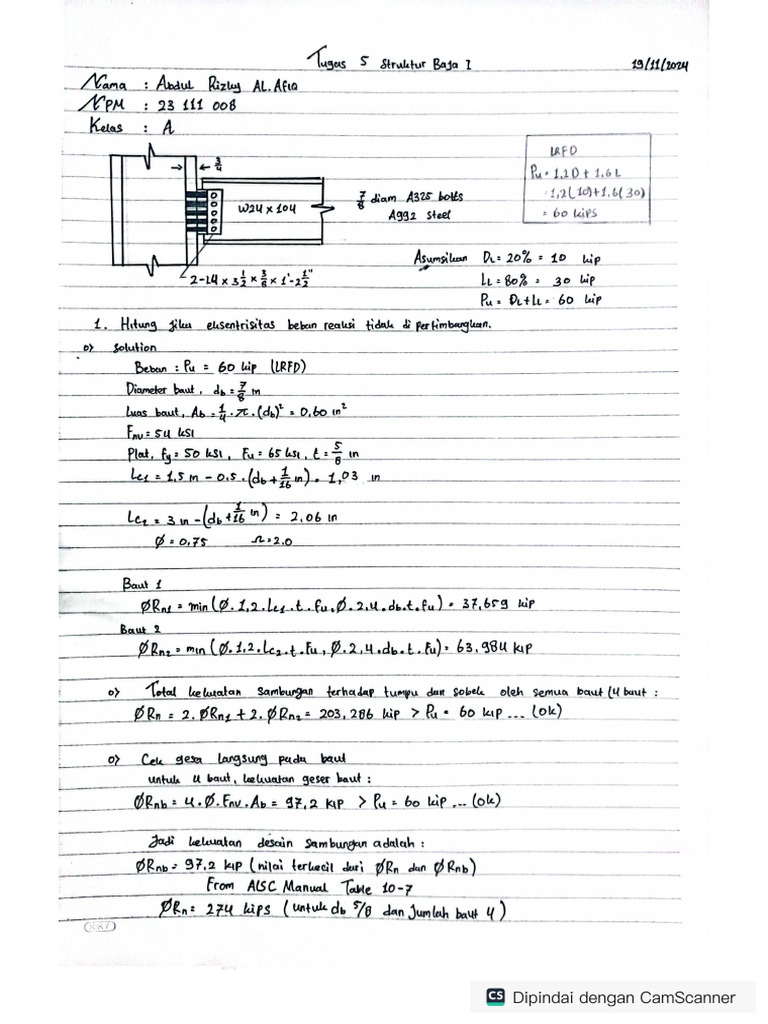 Tugas 5 Struktur Baja I
19/11/2024
Nama : Abdul Rizky AL. Afiq
NPM : 23 111 008
Kelas : A
LRFD
Pu = 1,2D + 1,6L
= 1,2(10)+1,6(30)
= 60 KIPS
3/4
W24 x 104
7/8 diam A325 bolts
A992 steel
2-L4 x 3 1/2 x 3/8 x 1'-2 1/2"
Asumsikan DL = 20% = 10 kip
LL = 80% = 30 kip
Pu = DL+LL = 60 kip
1. Hitung jika eksentrisitas beban reaksi tidak di pertimbangkan.
o> Solution
Beban : Pu = 60 kip (LRFD)
Diameter baut, db = 7/8 in
Luas baut, Ab = 1/4 . π. (db)² = 0,60 in²
Fnv = 54 ksi
Plat, Fy = 50 ksi, Fu = 65 ksi, t = 5/8 in
Lc1 = 1,5 in - 0.5 . (db + 1/16 in) = 1,03 in
Lc2 = 3 in - (db + 1/16 in) = 2,06 in
Ø = 0,75 Ω = 2.0
Baut 1
ØRn1 = min (Ø. 1,2. Lc1. t. fu, Ø. 2,4. db. t. fu) = 37,659 kip
Baut 2
ØRn2 = min (Ø. 1,2. Lc2. t. Fu, Ø. 2,4. db. t. Fu) = 63,984 kip
o> Total kekuatan sambungan terhadap tumpu dan sobek oleh semua baut (4 baut :
ØRn = 2. ØRn1 + 2. ØRn2 = 203,286 kip > Pu = 60 kip ... (ok)
o> Cek gesa langsung pada baut
untuk 4 baut, kekuatan geser baut :
ØRnb = 4. Ø. Fnv. Ab = 97,2 KIP > Pu = 60 kip ... (ok)
Jadi kekuatan desain sambungan adalah :
ØRnb = 97,2 kip (nilai terkecil dari ØRn dan ØRnb)
From AISC Manual Table 10-7
ØRn = 274 kips (untuk db 5/8 dan Jumlah baut 4)
CS Dipindai dengan CamScanner